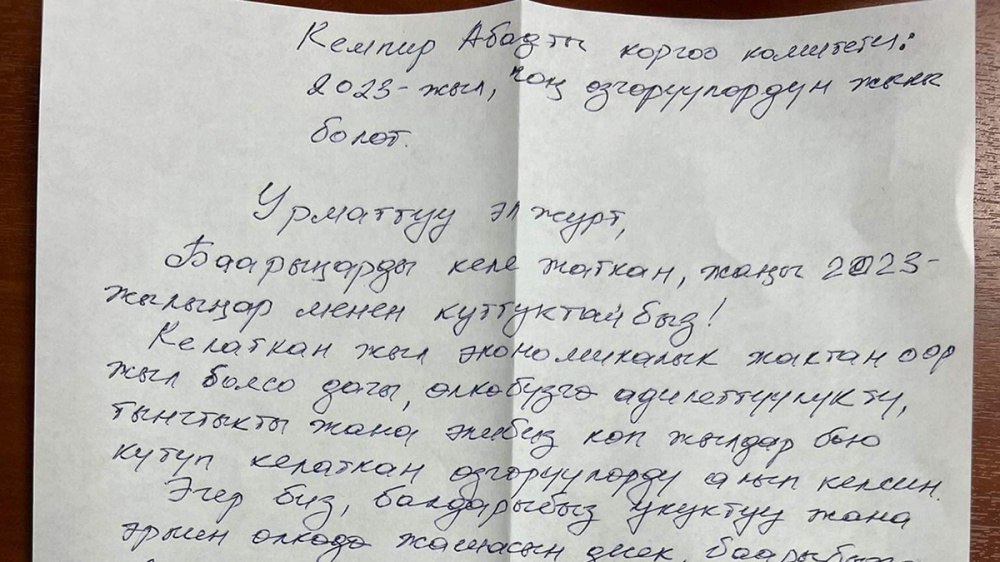 Кемпир Абадты коргоо комитети:
2023-жыл, чоң өзгөрүүлөрдүн жылы
болот.
Урматтуу эл журт,
Баарыңарды келе жаткан, жаңы 2023-
жылыңар менен куттуктайбыз!
Келаткан жыл экономикалык жактан оор
жыл болсо дагы, өлкөбүзгө адилеттүүлүктү,
тынчтыкты жана элибиз көп жылдар бою
күтүп келаткан өзгөрүүлөрдү алып келсин.
Эгер биз, балдарыбыз укуктуу жана
эркин өлкөдө жашасын десек,